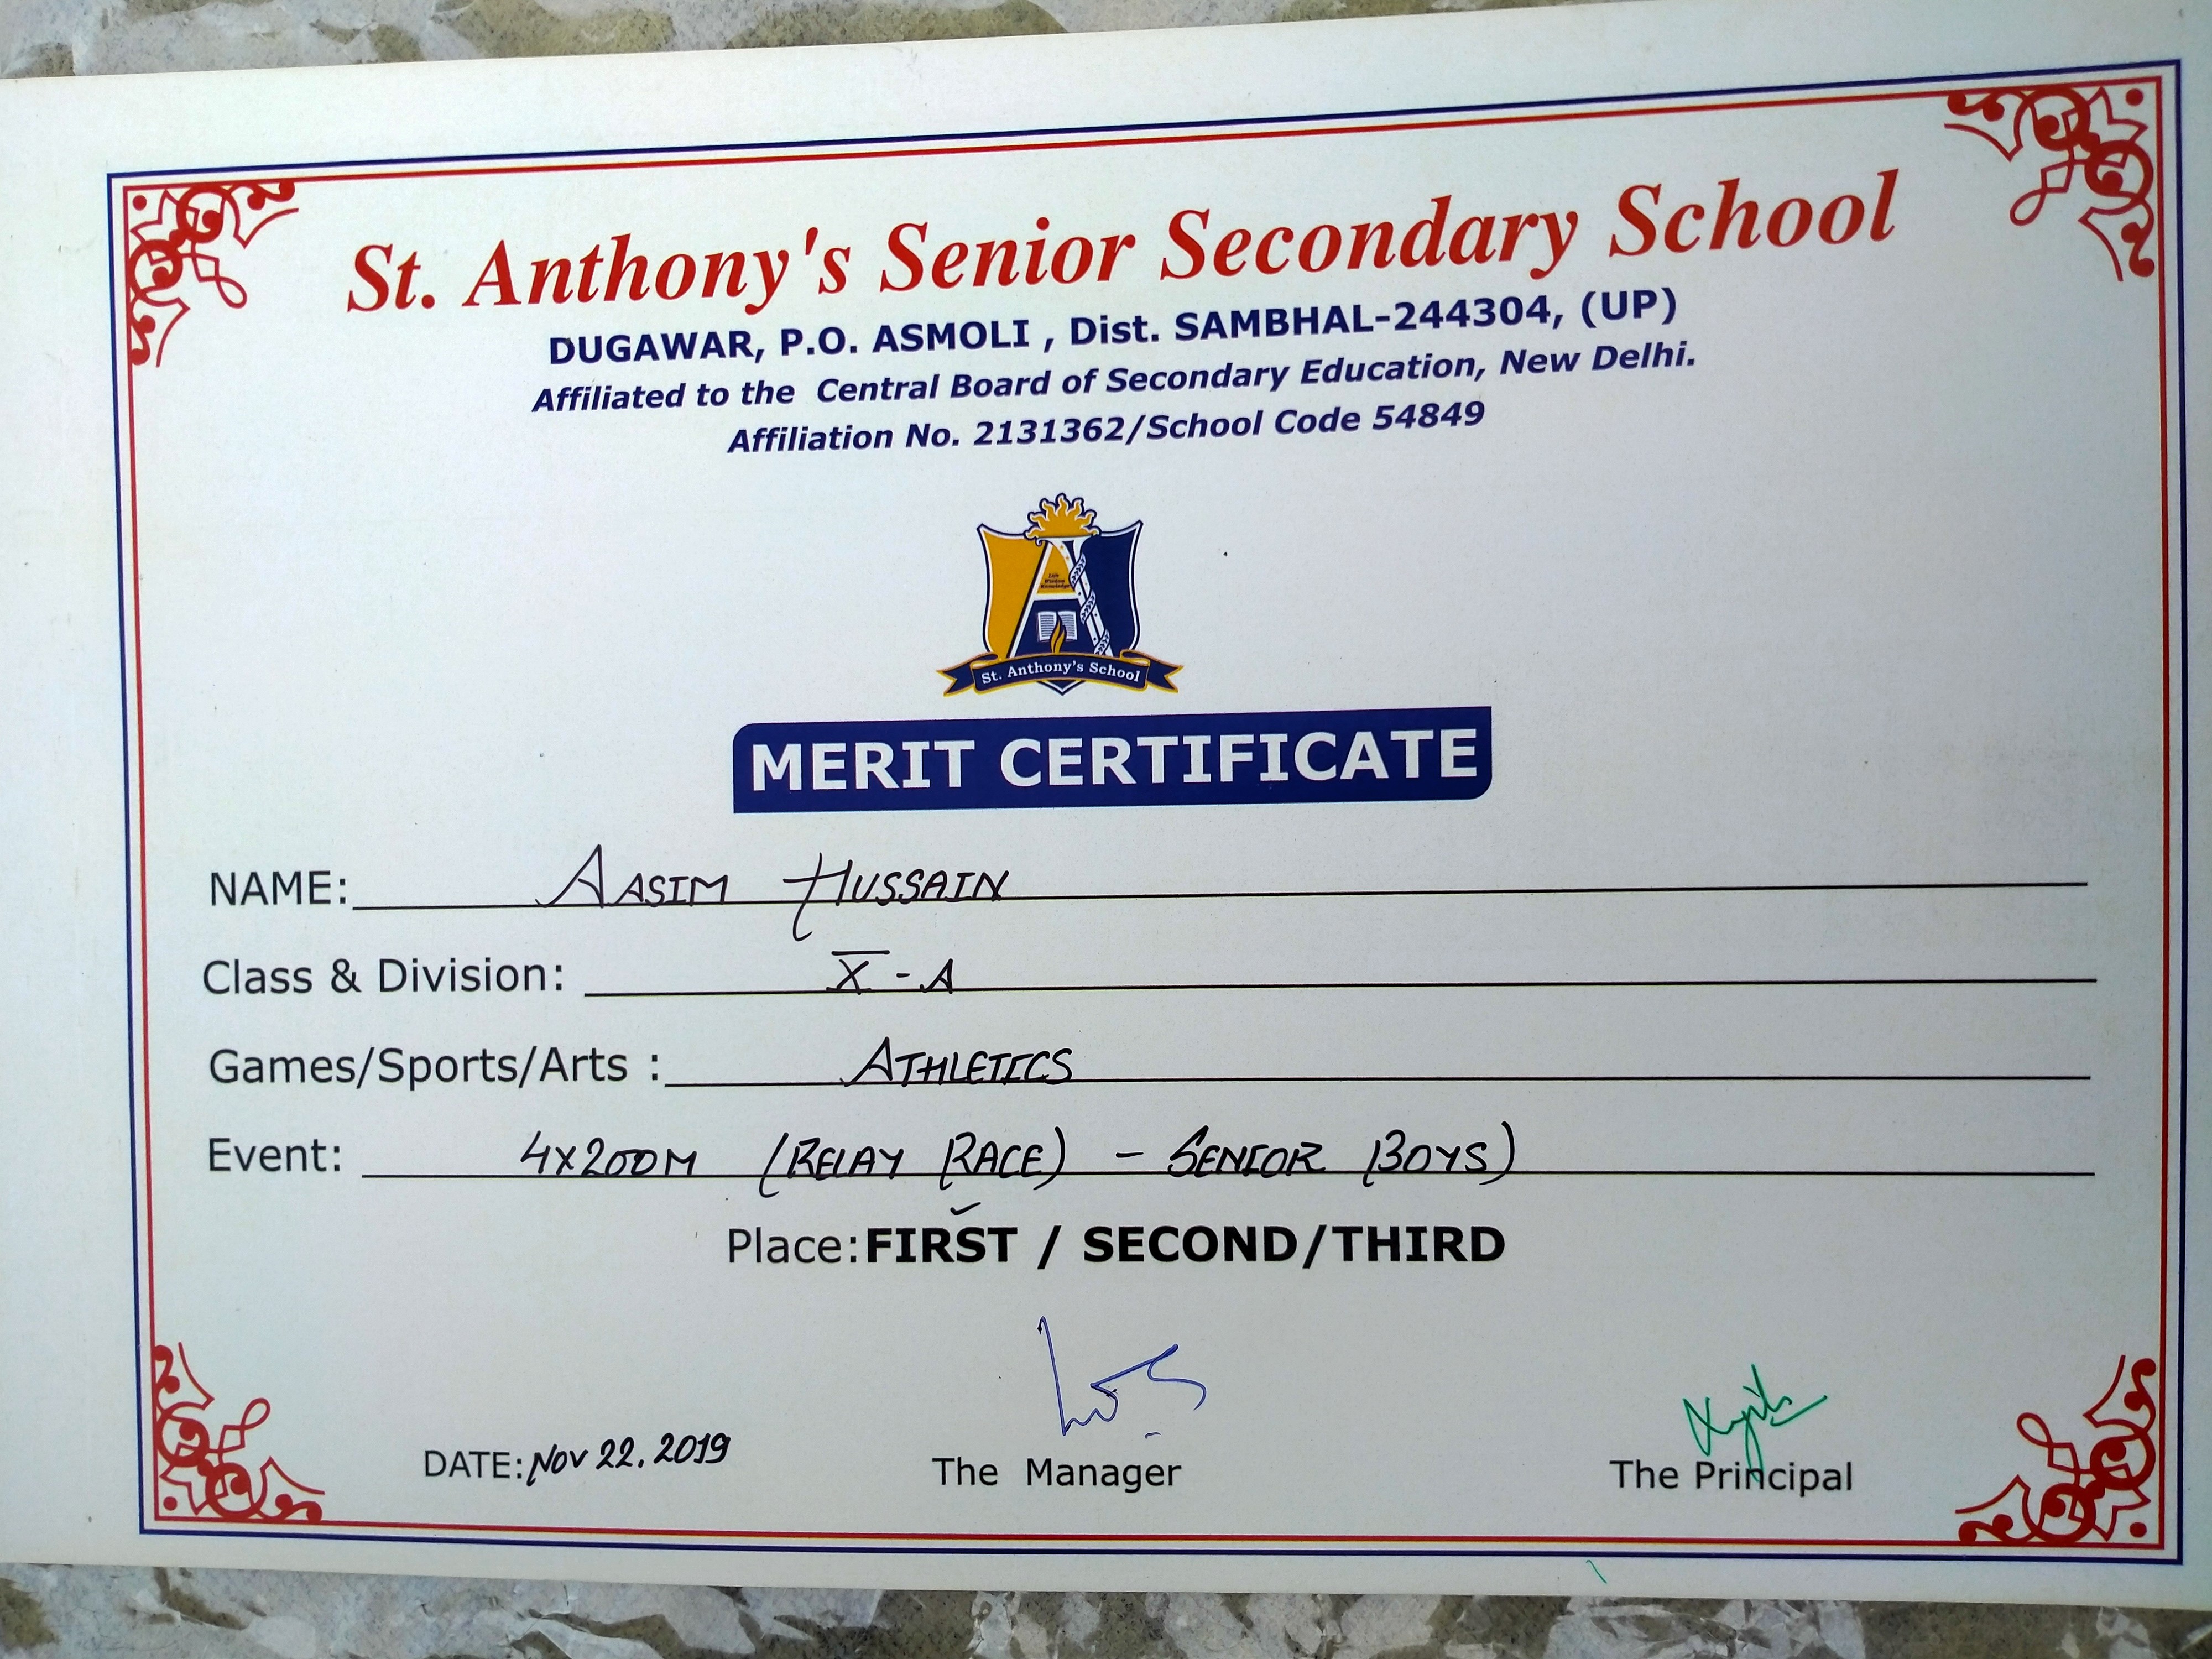 St. Anthony's Senior Secondary School
DUGAWAR, P.O. ASMOLI , Dist. SAMBHAL-244304, (UP)
Affiliated to the Central Board of Secondary Education, New Delhi.
Affiliation No. 2131362/School Code 54849
Life
Wisdom
Knowledge
St. Anthony's School
MERIT CERTIFICATE
NAME: AASIM HUSSAIN
Class & Division: X - A
Games/Sports/Arts : ATHLETICS
Event: 4X200M (RELAY RACE) - SENIOR BOYS)
Place:FIRST / SECOND/THIRD
DATE: NOV 22, 2019
The Manager
The Principal